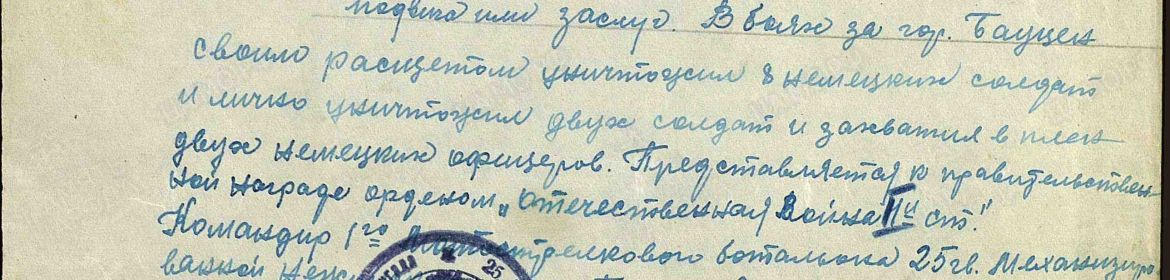 подвига или заслуг. В боях за гор. Бауцен
своим расщетом уничтожил 8 немецких солдат
и лично уничтожил двух солдат и захватил в плен
двух немецких офицеров. Представляется к правительствен-
ной награде орденом „Отечественная Война IIй ст."
Командир 1го Мотострелкового батальона 25 гв. Механизиро
ванной
25